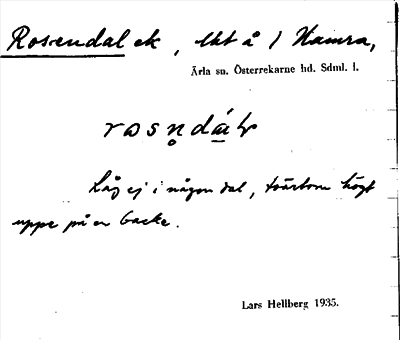 Rosendal ek, lht å 1 Hamra,
Ärla sn. Österrekarne hd. Sdml. l.
rosn̥dá̱lɩ
Låg ej i någon dal, tvärtom högt
uppe på en backe.
Lars Hellberg 1935.